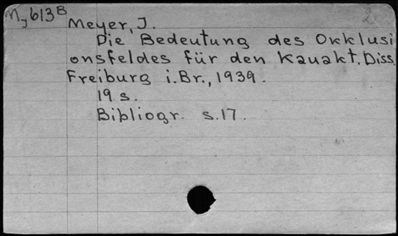 My613B
Meyer, J.
Die Bedeutung des Okklusi
onsfeldes für den Kauakt. Diss.
Freiburg i.Br., 1939.
19 s.
Bibliogr. s.17.